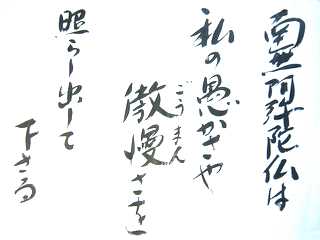 南無阿弥陀仏は
私の愚かさや
傲慢さを
ごうまん
照らし出して
下さる